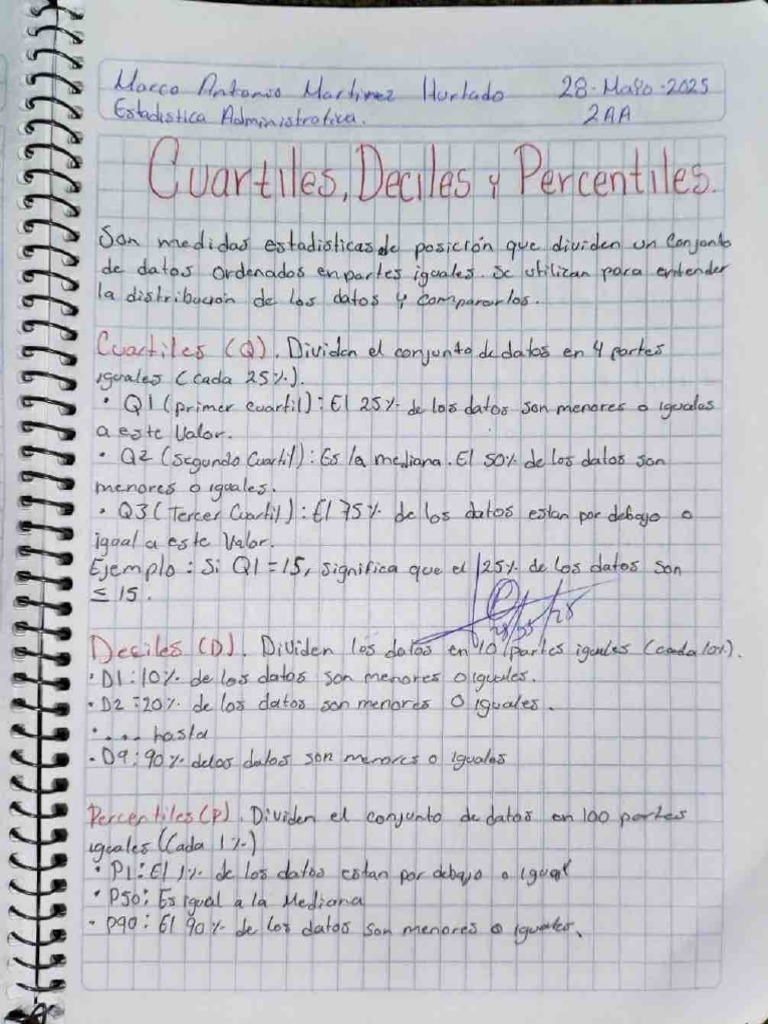 Marco Antonio Martinez Hurtado 28-Mayo-2025
Estadistica Administrativa. 2AA
Cuartiles, Deciles y Percentiles.
Son medidas estadisticas de posición que dividen un Conjunto
de datos ordenados en partes iguales. Se utilizan para entender
la distribución de los datos y compararlos.
Cuartiles (Q). Dividen el conjunto de datos en 4 partes
iguales (cada 25%).
• Q1 (primer cuartil): El 25% de los datos son menores o iguales
a este Valor.
• Q2 (Segundo Cuartil): Es la mediana. El 50% de los datos son
menores o iguales.
• Q3 (Tercer Cuartil): El 75% de los datos estan por debajo o
igual a este Valor.
Ejemplo: Si Q1 = 15, significa que el 25% de los datos son
≤ 15.
28/05/25
Deciles (D). Dividen los datos en 10 partes iguales (cada 10%).
• D1: 10% de los datos son menores o iguales.
• D2: 20% de los datos son menores o iguales.
• ... hasta
• D9: 90% de los datos son menores o iguales
Percentiles (P). Dividen el conjunto de datos en 100 partes
iguales (Cada 1%)
• P1: El 1% de los datos estan por debajo o igual
• P50: Es igual a la Mediana
• P90: El 90% de los datos son menores o iguales.